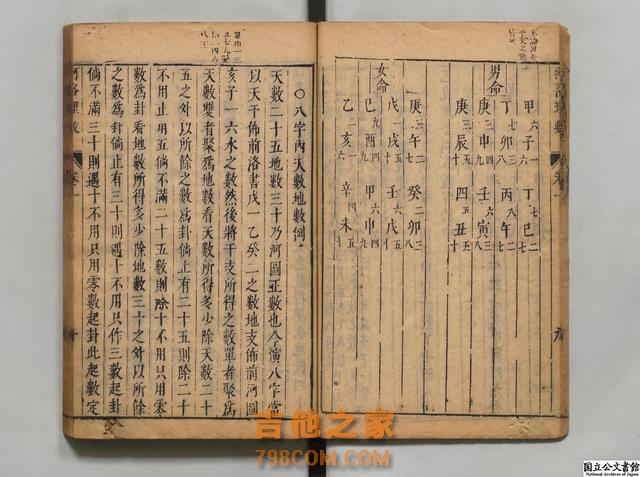 河洛理數
卷一
男命
甲六子一 丁七巳二七
丁七卯三八 丙八午二七
庚三申四九 壬六寅三八
庚三辰五十 丑五十
女命
庚三午二七 癸二卯三八
戊一戌五十 壬六戌五十
酉四九 甲六申四九
乙二亥一六 辛四未五十
○八字內天數地數例
天數二十五地數三十乃河圖正數也今演八字當
以天干佈前洛書戊一乙癸二之數地支佈前河圖
亥子一六水之數然後將干支所得之數單者聚爲
天數雙者聚爲地數看天數所得多少除天數二十
五之外以所餘之數爲卦倘止有二十五則除二十
不用止用五倘不滿二十五數則除十不用只用零
數爲卦看地數所得多少除地數三十之外以所餘
之數爲卦倘止有三十則遇十不用只作三數起卦
倘不滿三十則遇十不用只用零數起卦此起數定
河洛理數
卷一
吉他之家
798COM.COM
国立公文書館
National Archives of Japan